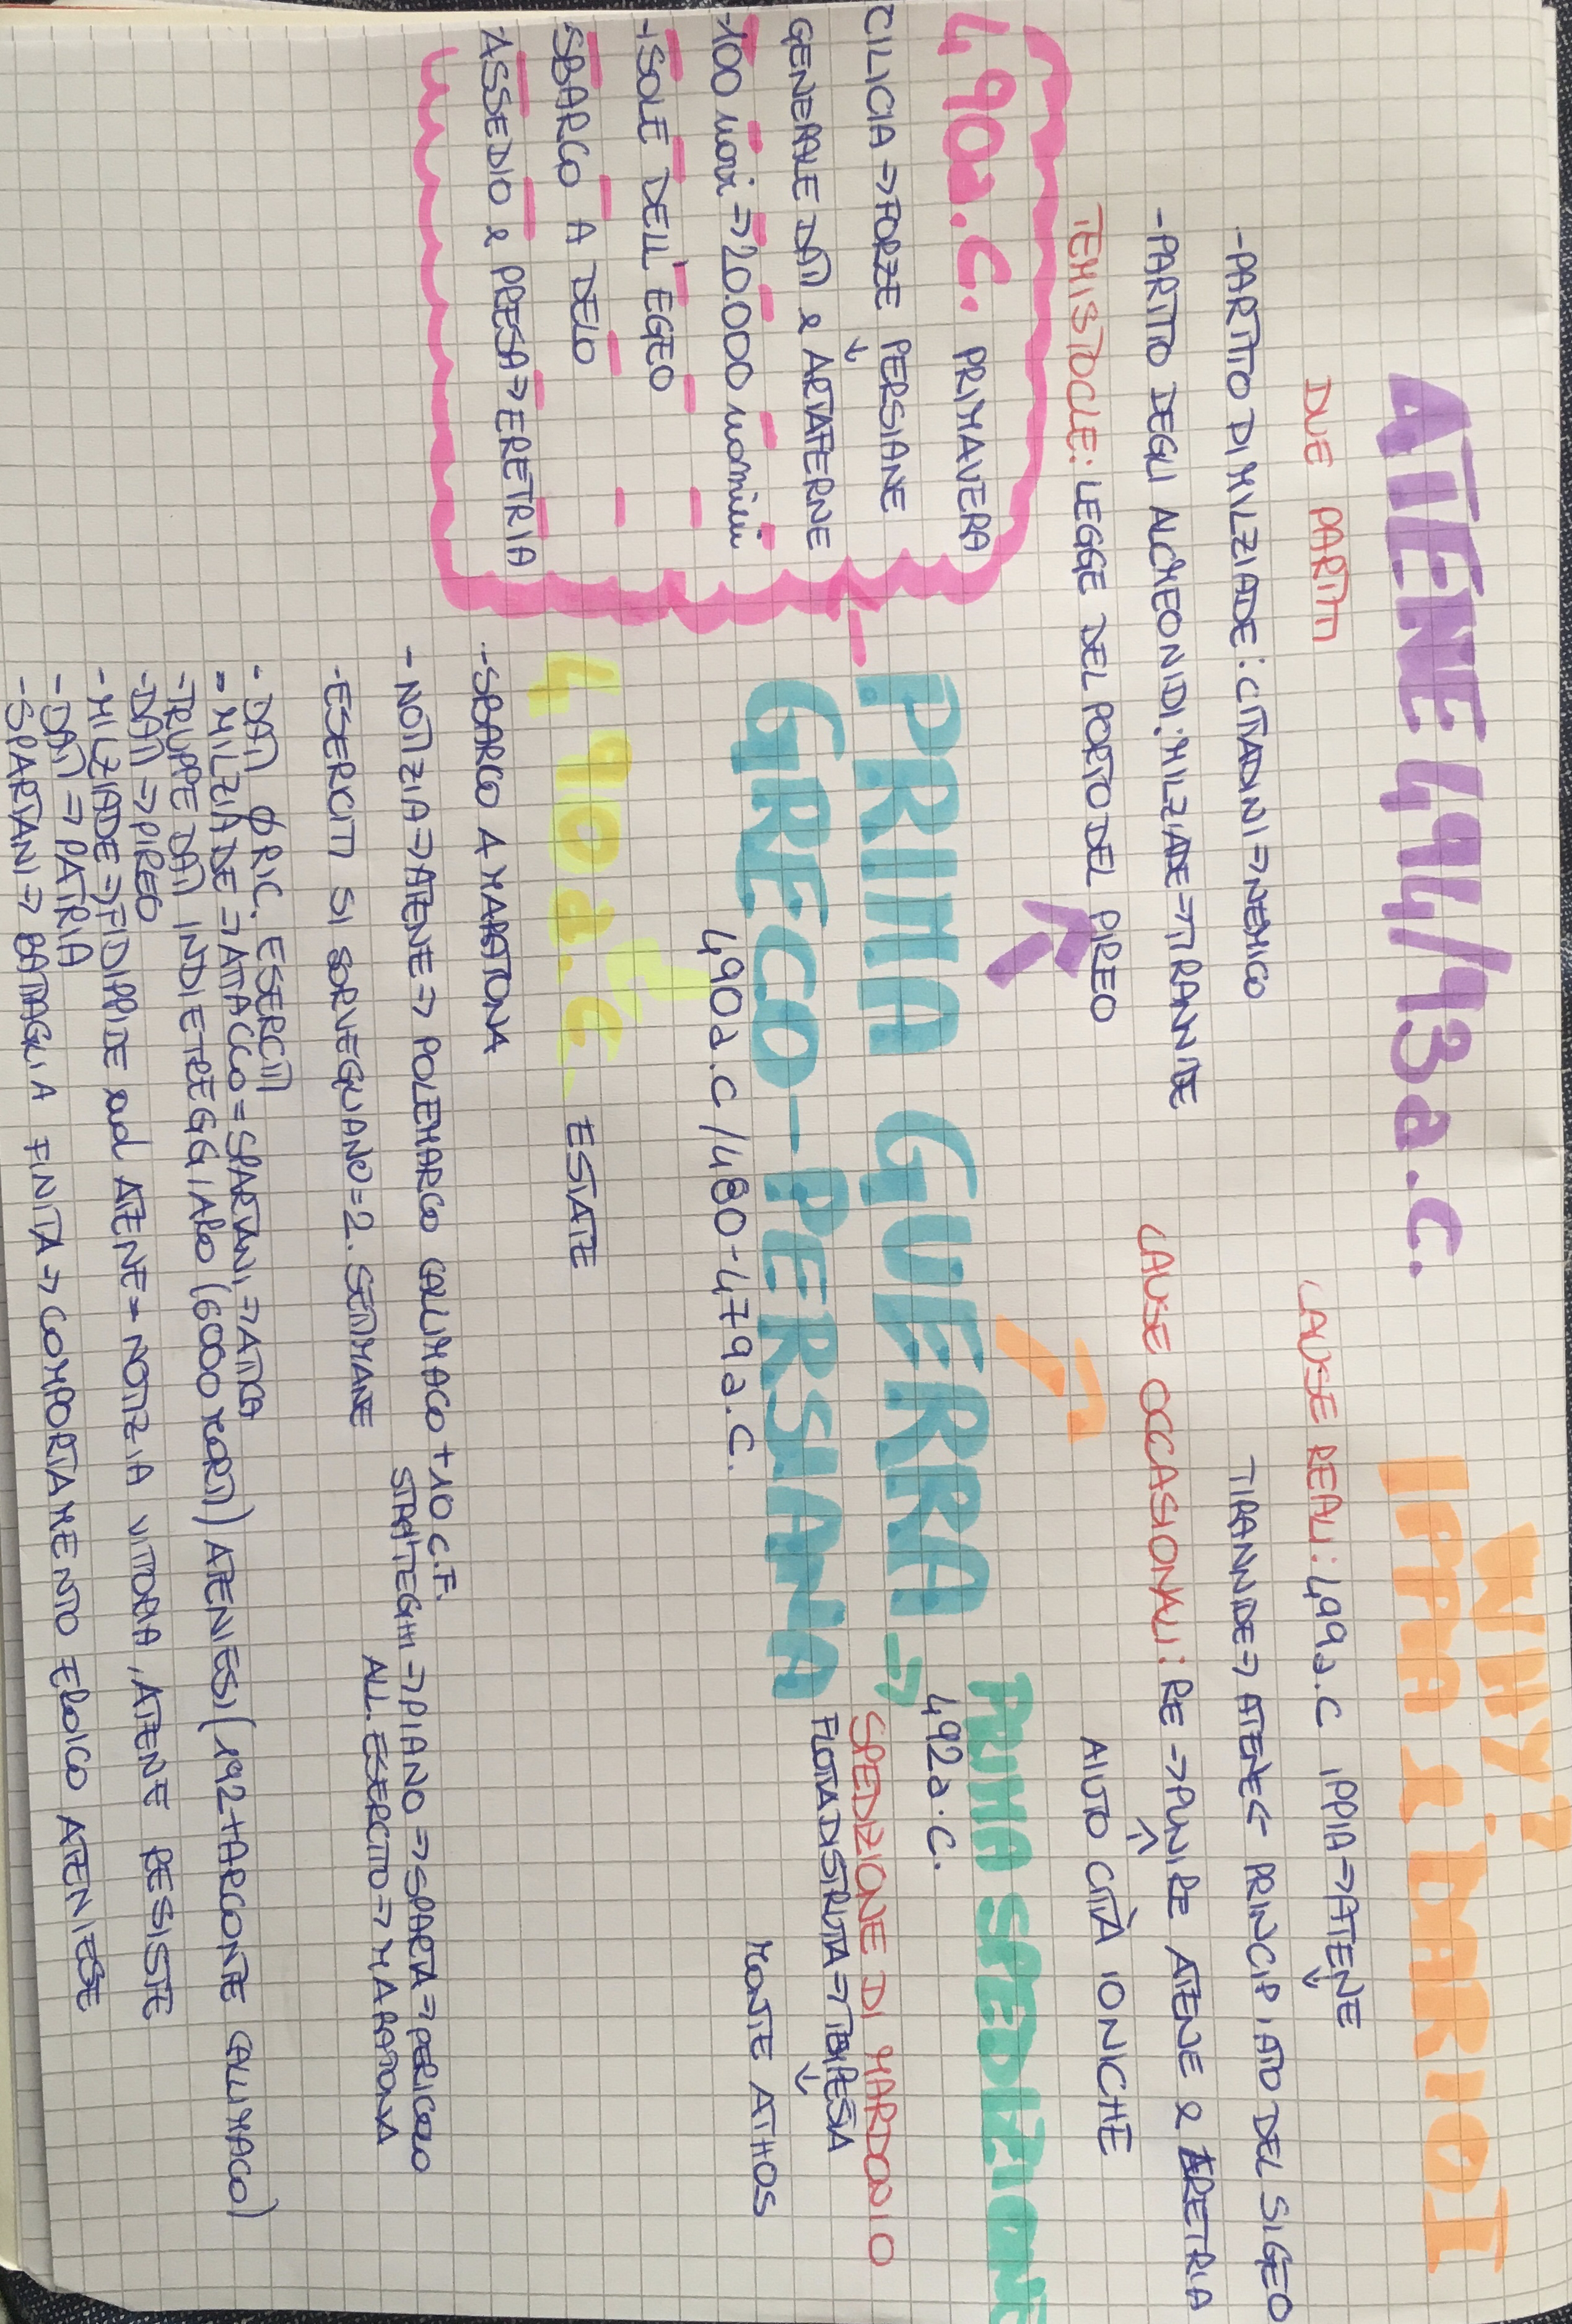 ATENE 494/93a.C.
DUE PARTITI
-PARTITO DI MILZIADE: CITTADINI=>NEMICO
-PARTITO DEGLI ALCMEONIDI: MILZIADE=>TIRANNIDE
TEMISTOCLE: LEGGE DEL PORTO DEL PIREO
WHY?
IPPIA & DARIO I
CAUSE REALI: 499a.C IPPIA=>ATENE
TIRANNIDE=>ATENE<- PRINCIPIATO DEL SIGEO
CAUSE OCCASIONALI: RE=>PUNIRE ATENE & ERETRIA
AIUTO CITTÀ IONICHE
490a.C. PRIMAVERA
CILICIA=>FORZE PERSIANE
GENERALE DATI & ARTAFERNE
-100 navi=>20.000 uomini
-ISOLE DELL'EGEO
-SBARCO A DELO
-ASSEDIO & PRESA=>ERETRIA
PRIMA GUERRA
GRECO-PERSIANA
490a.C/480-479a.C.
PRIMA SPEDIZIONE
492a.C.
SPEDIZIONE DI MARDONIO
FLOTTA DISTRUTTA=>TEMPESTA
MONTE ATHOS
490a.C. ESTATE
-SBARCO A MARATONA
- NOTIZIA=>ATENE=> POLEMARCO CALLIMACO +10 C.F.
STRATEGHI=>PIANO=>SPARTA=>PERICOLO
ALL.ESERCITO=>MARATONA
-ESERCITI SI SORVEGLIANO=2.SETTIMANE
- DATI ϕ RIC. ESERCITI
- MILZIADE=>ATTACCO=SPARTANI=>ATTICA
-TRUPPE DATI INDIETREGGIANO (6000 MORTI) ATENIESI (192+ARCONTE CALLIMACO)
-DATI=>PIREO
-MILZIADE=>FIDIPPIDE ad ATENE=> NOTIZIA VITTORIA, ATENE RESISTE
-DATI=>PATRIA
-SPARTANI=> BATTAGLIA FINITA=> COMPORTAMENTO EROICO ATENIESE